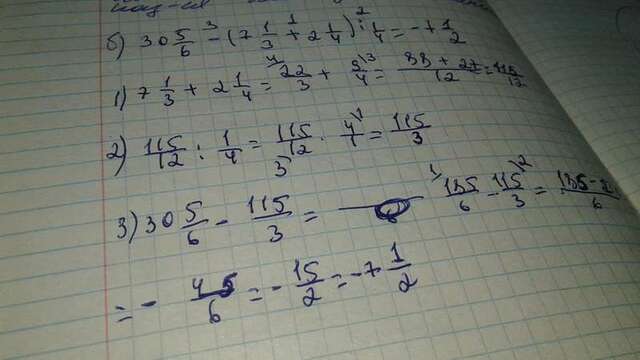 б) 30 5/6 - (7 1/3 + 2 1/4) : 1/4 = -7 1/2
1) 7 1/3 + 2 1/4 = 22/3 + 9/4 = 88 + 27/12 = 115/12
2) 115/12 : 1/4 = 115/12 · 4/1 = 115/3
3) 30 5/6 - 115/3 = 185/6 - 115/3 = 185 - 2
= - 45/6 = - 15/2 = -7 1/2